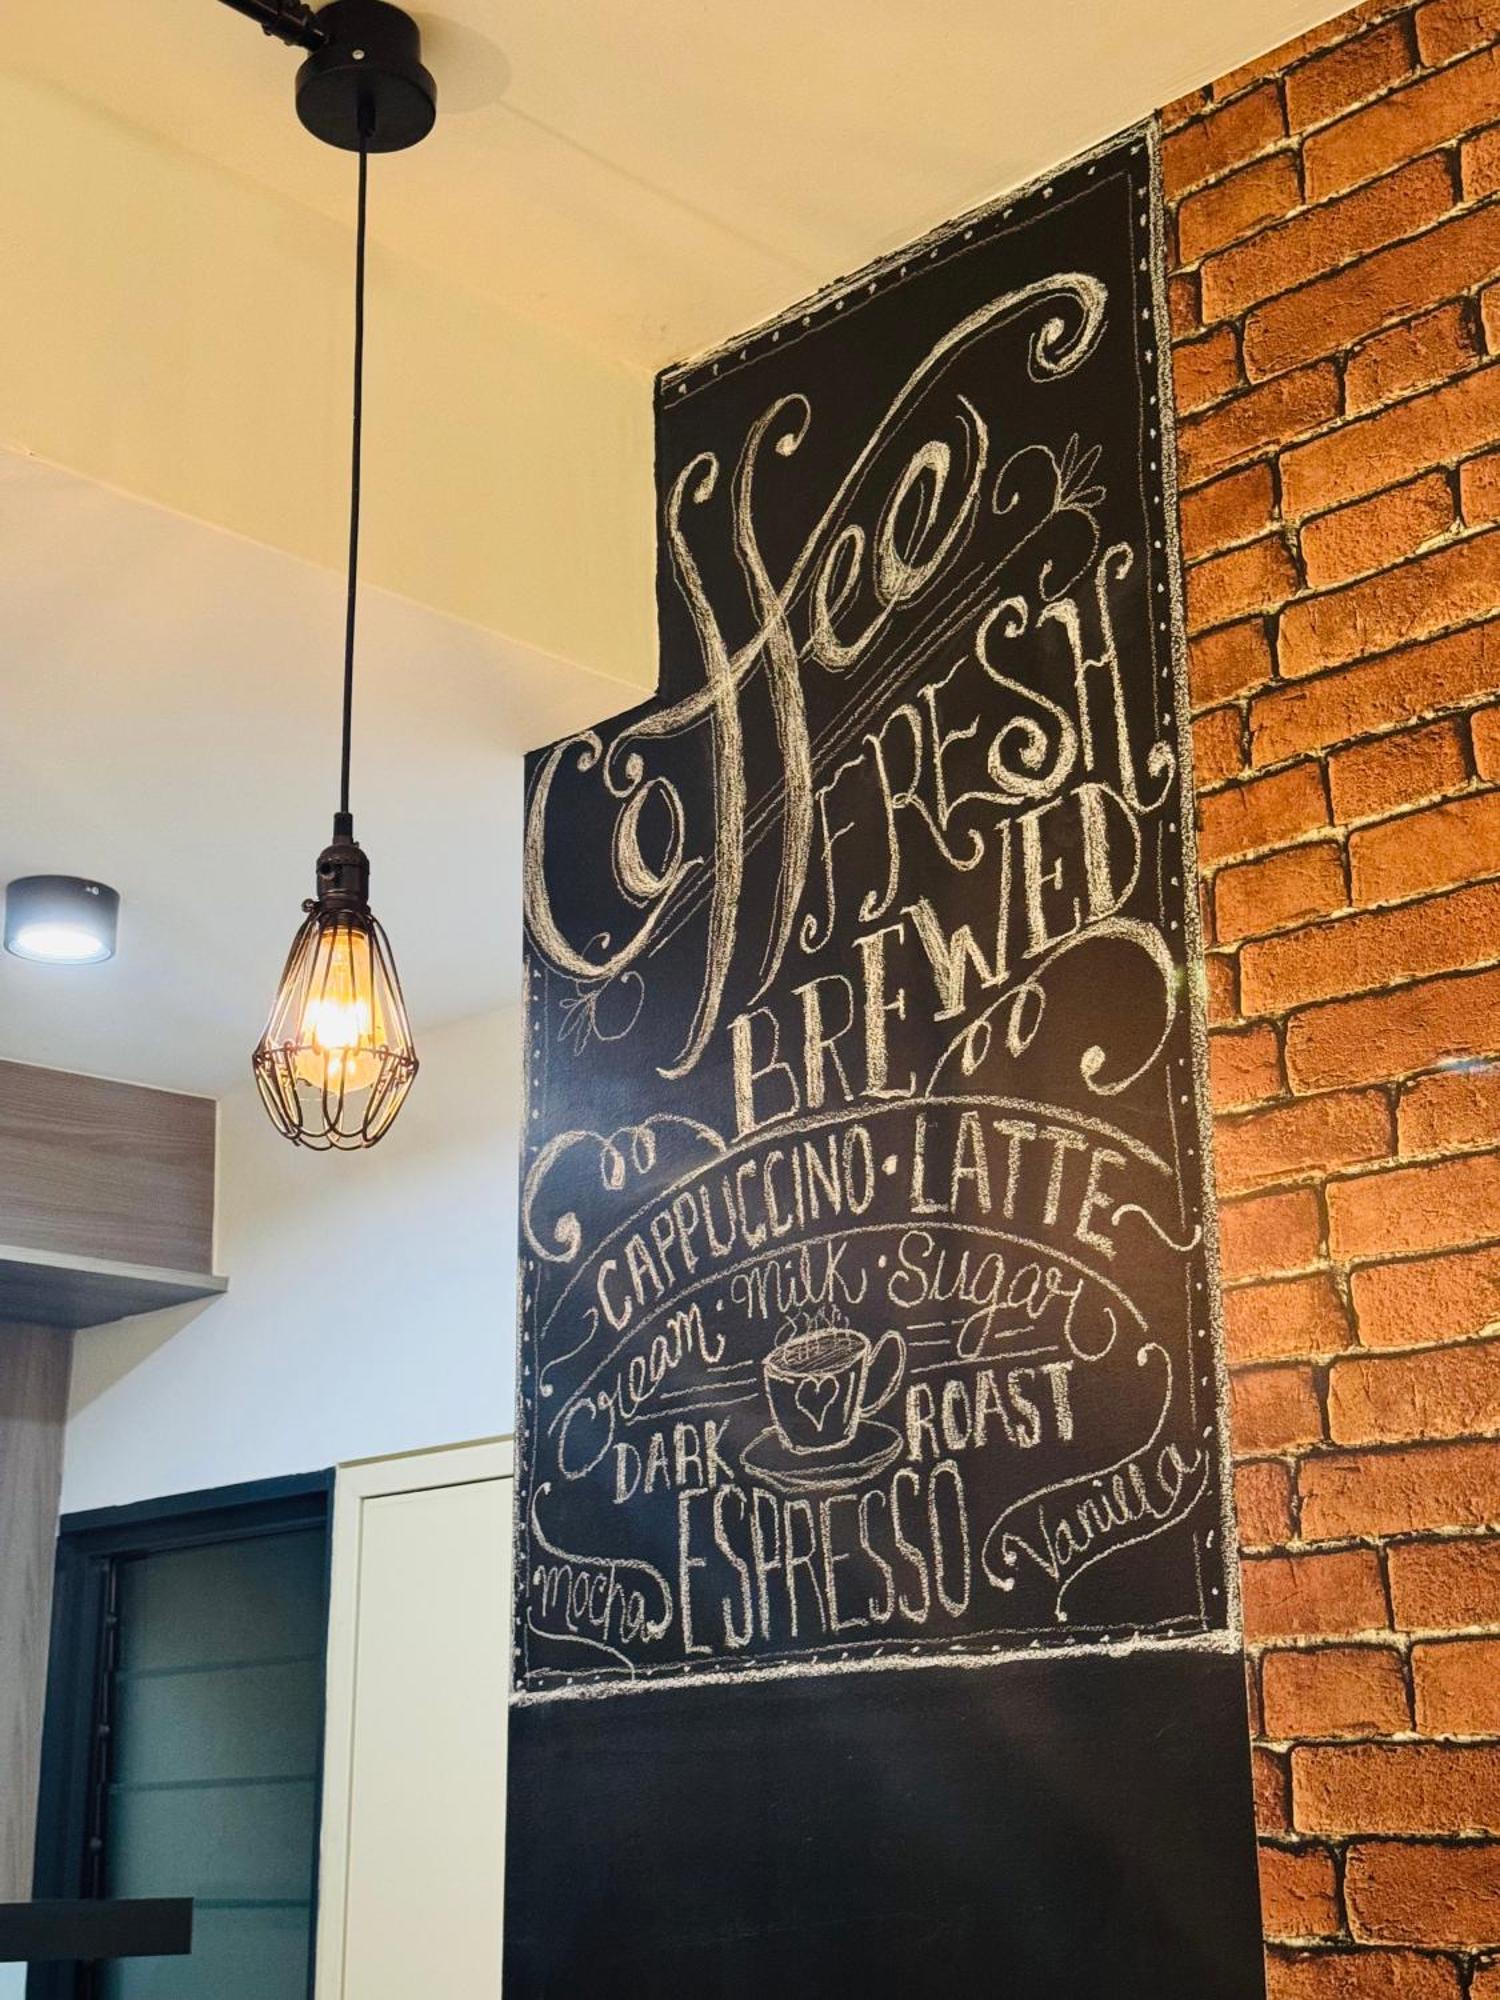 Coffee
FRESH
BREWED
CAPPUCCINO · LATTE
Cream · Milk · Sugar
DARK ROAST
ESPRESSO
Vanilla
mocha